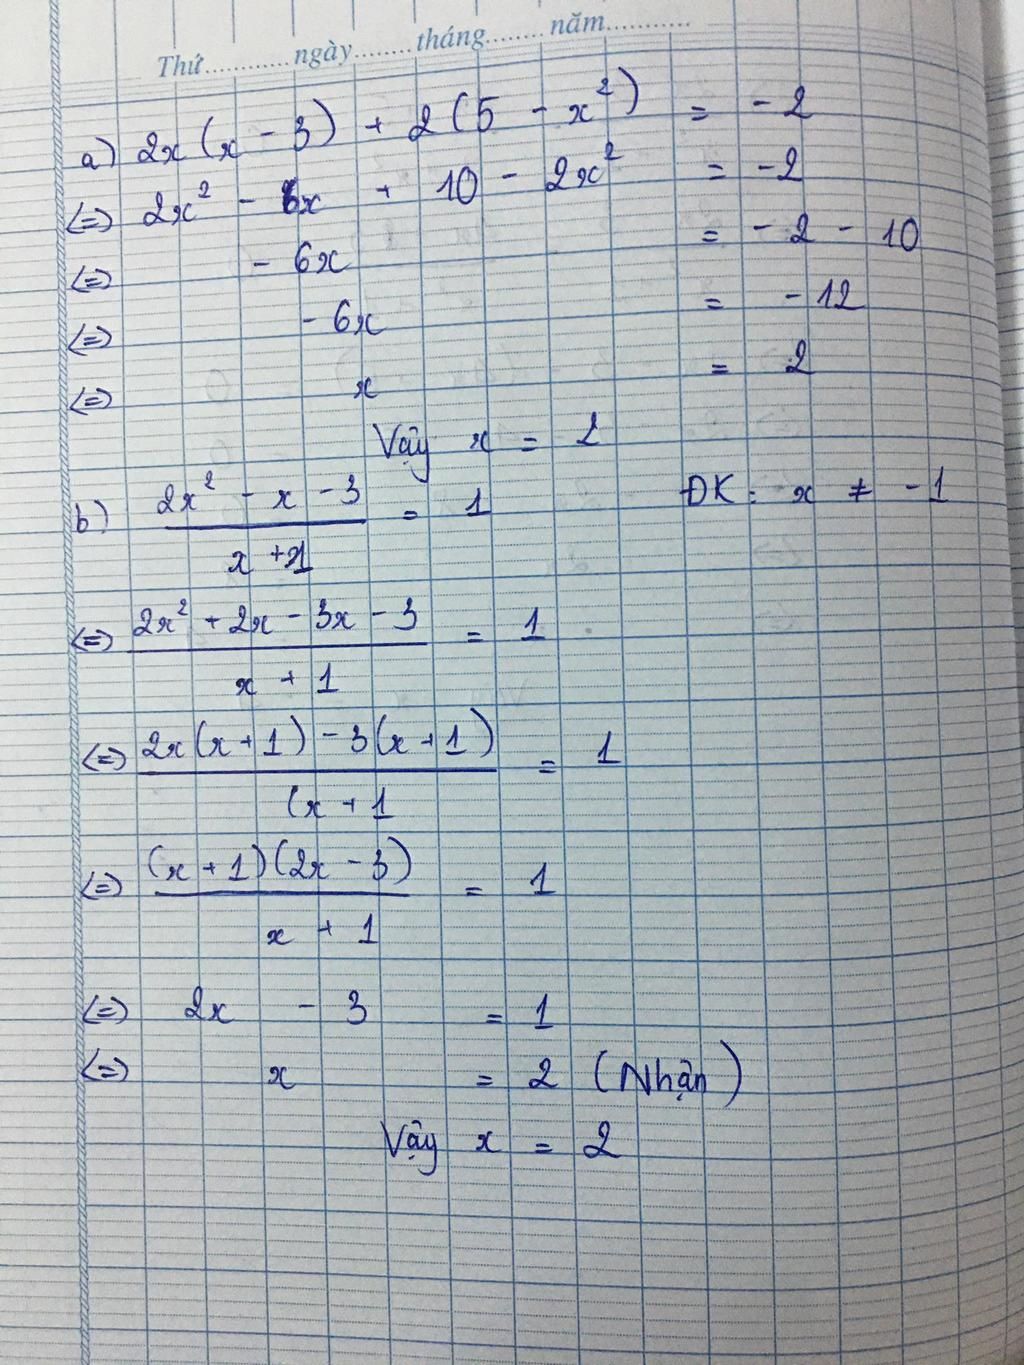 Thứ............ngày........tháng........năm............
a) 2x(x - 3) + 2(5 - x²) = - 2
<=> 2x² - 6x + 10 - 2x² = - 2
<=> - 6x = - 2 - 10
<=> - 6x = - 12
<=> x = 2
Vậy x = 2
b) (2x² - x - 3)/(x + 1) = 1 ĐK: x ≠ - 1
<=> (2x² + 2x - 3x - 3)/(x + 1) = 1
<=> (2x(x + 1) - 3(x + 1))/((x + 1) = 1
<=> ((x + 1)(2x - 3))/(x + 1) = 1
<=> 2x - 3 = 1
<=> x = 2 (Nhận)
Vậy x = 2